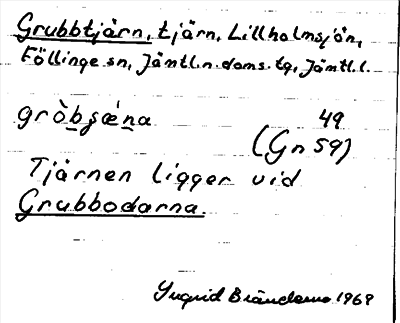 Grubbtjärn, tjärn, Lillholmsjön,
Föllinge sn, Jämtl.n.doms.tg, Jämtl.l.
gròb̲sǽn̲a
49
(Gn 59)
Tjärnen ligger vid
Grubbodarna.
Ingrid 1969